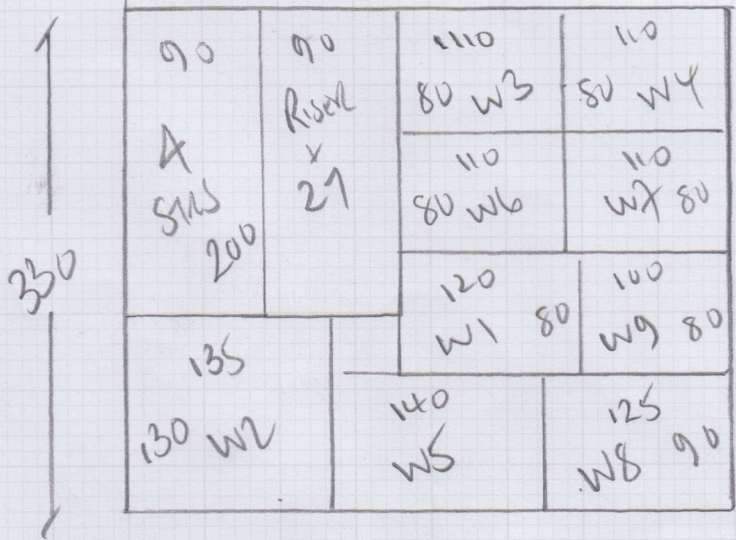 330
90
A
200
90
Riser
x
1110
80 W3
110
80 W4
110
80 W6
110
W7 80
120
W1 80
100
W9 80
135
130 W2
140
W5
125
W8 90